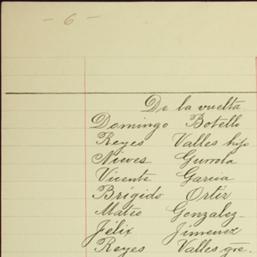 - 6 -
De la vuelta
Domingo Botello
Reyes Valles hijo
Nieves Gurrola
Vicente Garcia
Brígido Ortíz
Mateo Gonzalez
Félix Jimenez
Reyes Valles gre.